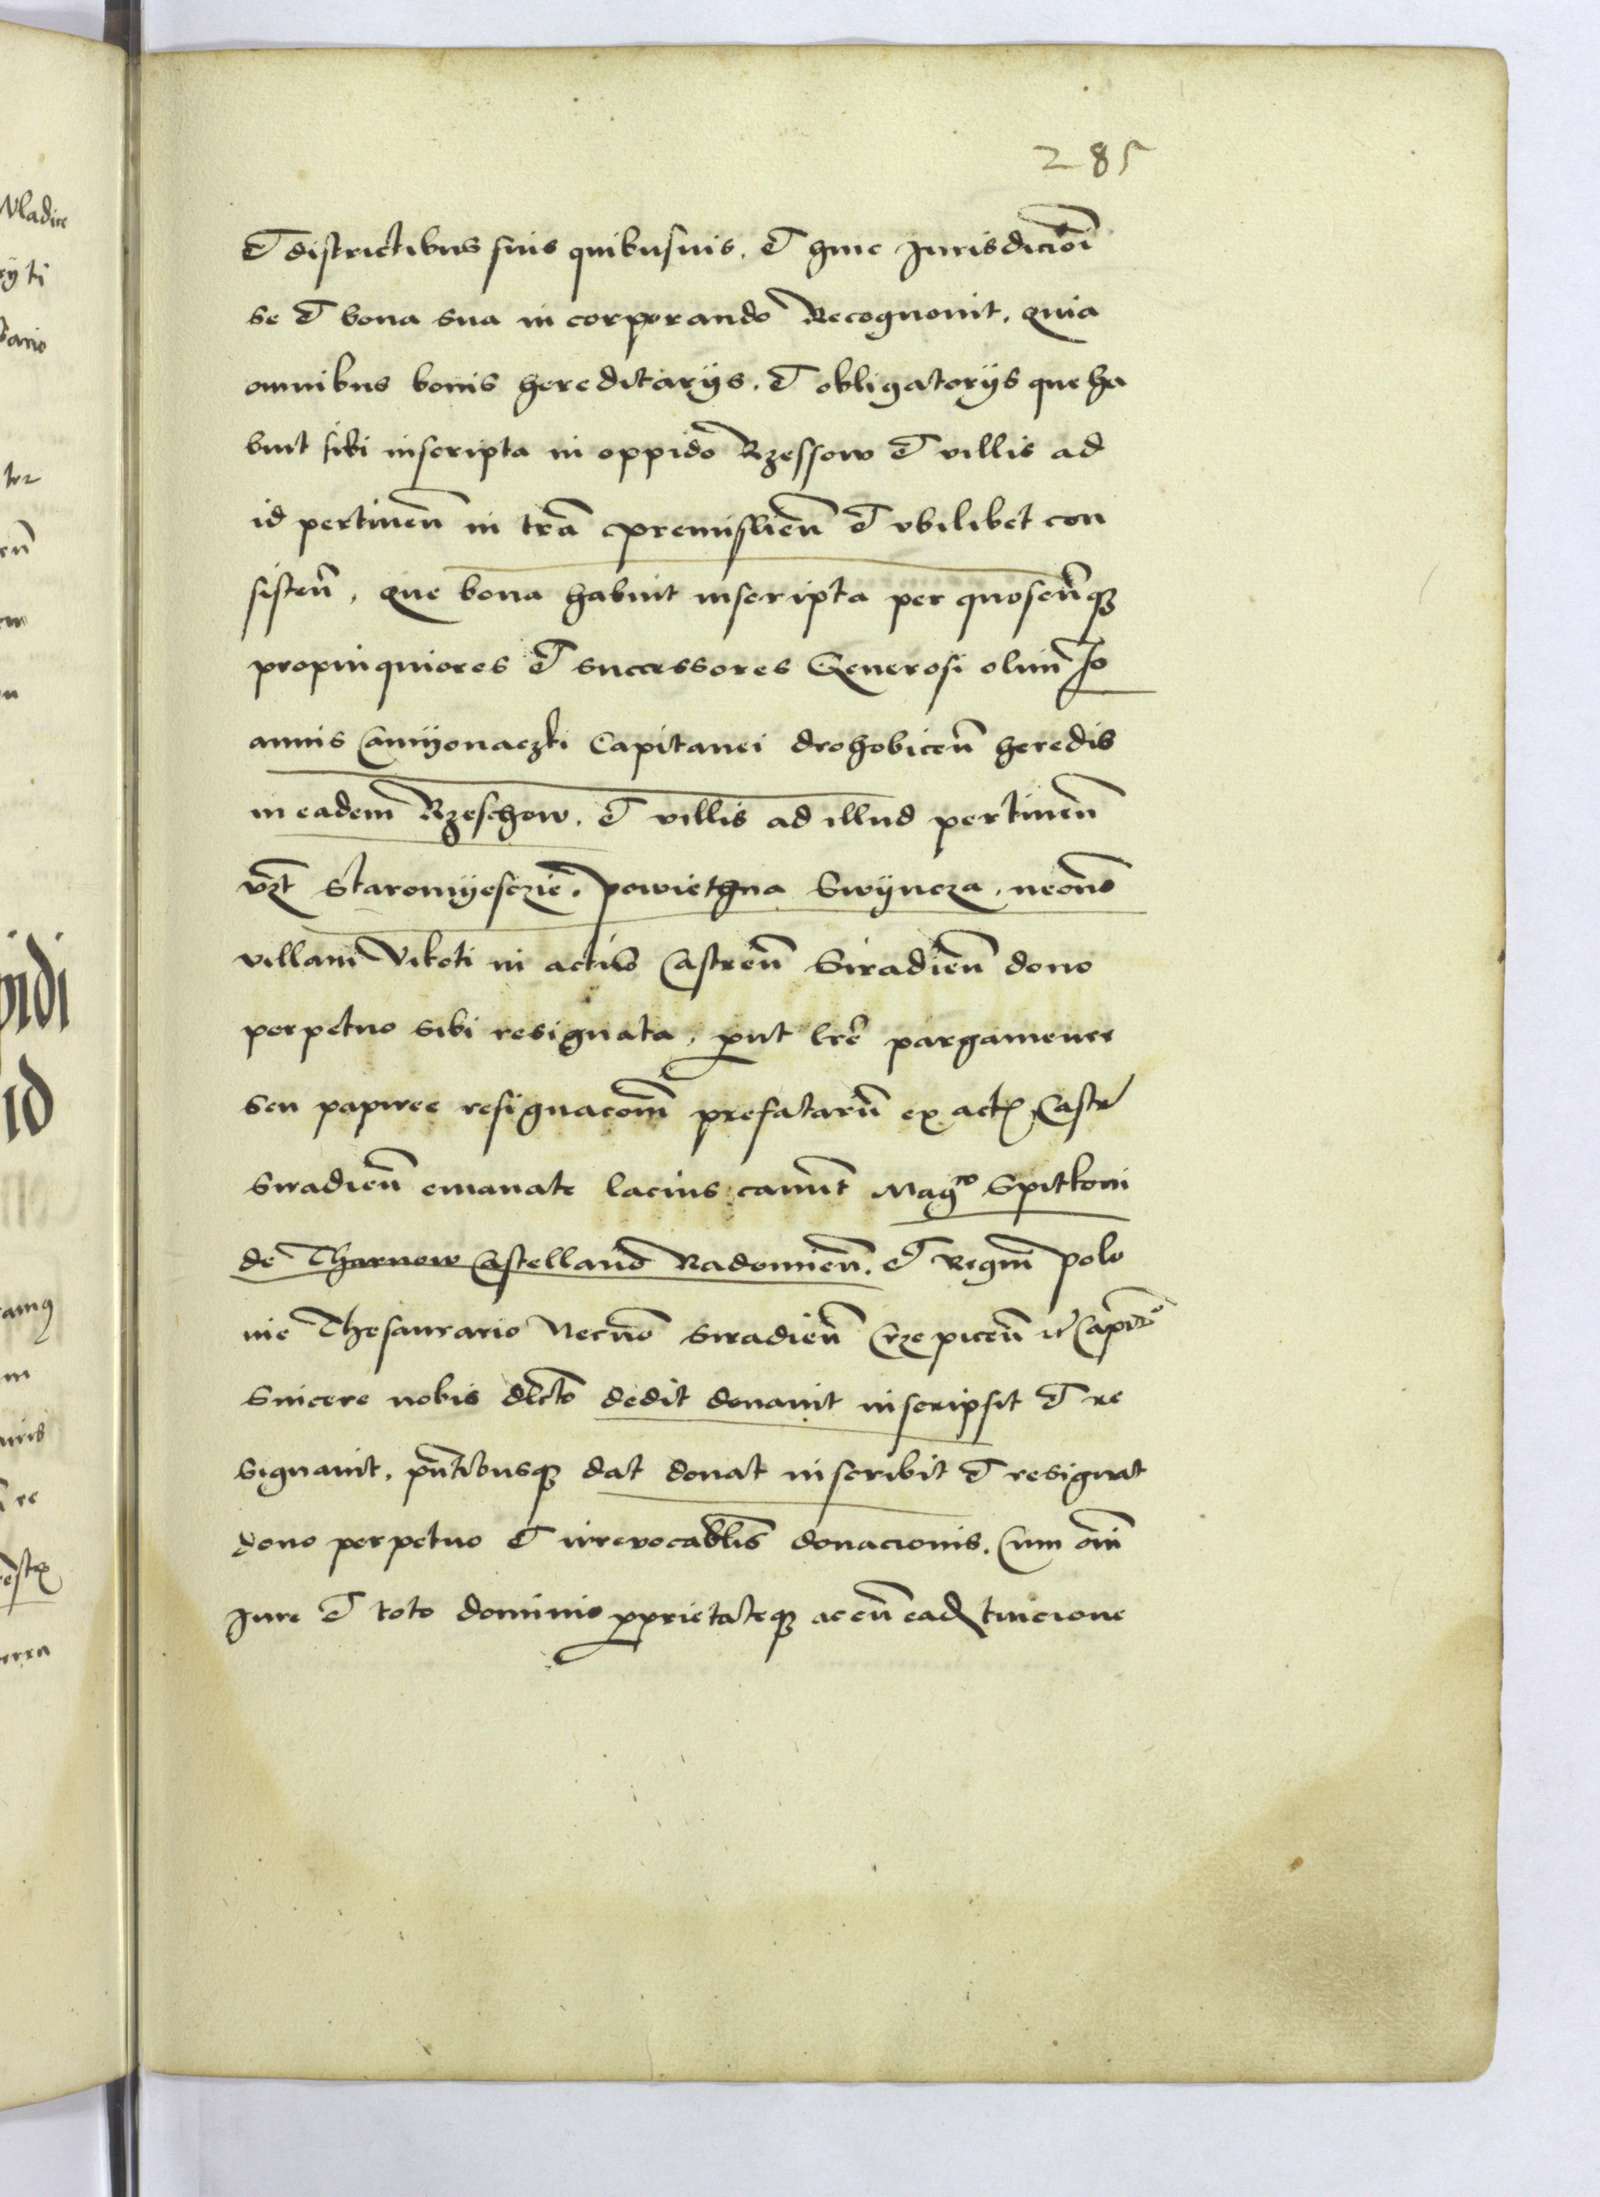 285
Et districtibus suis quibusuis. Et huic Jurisdicioi
se Et bona sua in corporando Recognouit. quia
omnibus bonis hereditarijs. Et obligatorijs que ha
buit sibi inscripta in oppido Rzessow Et villis ad
id pertinen in tra premislien Et vbilibet con
sisten, que bona habuit inscripta per quoscunqz
propinquiores Et successores Generosi olim Jo
annis Camyonaczki Capitanei drohobicen heredis
in eadem Rzeschow. Et villis ad illud pertinen
vzt Staromyesczie. powiethna Swyncza. necno
villam in actis Castren Siradien dono
perpetuo sibi resignata, put lre pargamenee
seu papiree resignacom prefatarum ex actis Castr
Siradien emanate lacius canunt Mag^co Spitkoni
de Tharnow Castellano Radomien. Et Regni polo
nie Thesaurario Necno Siradien Crzepicen Capito
sincere nobis dlcto dedit donauit inscripsit Et re
signauit. pntibusqz dat donat inscribit Et resignat
dono perpetuo Et irreuocablis donacionis. Cum omi
Jure Et toto dominio pprietateqz ac cu ead